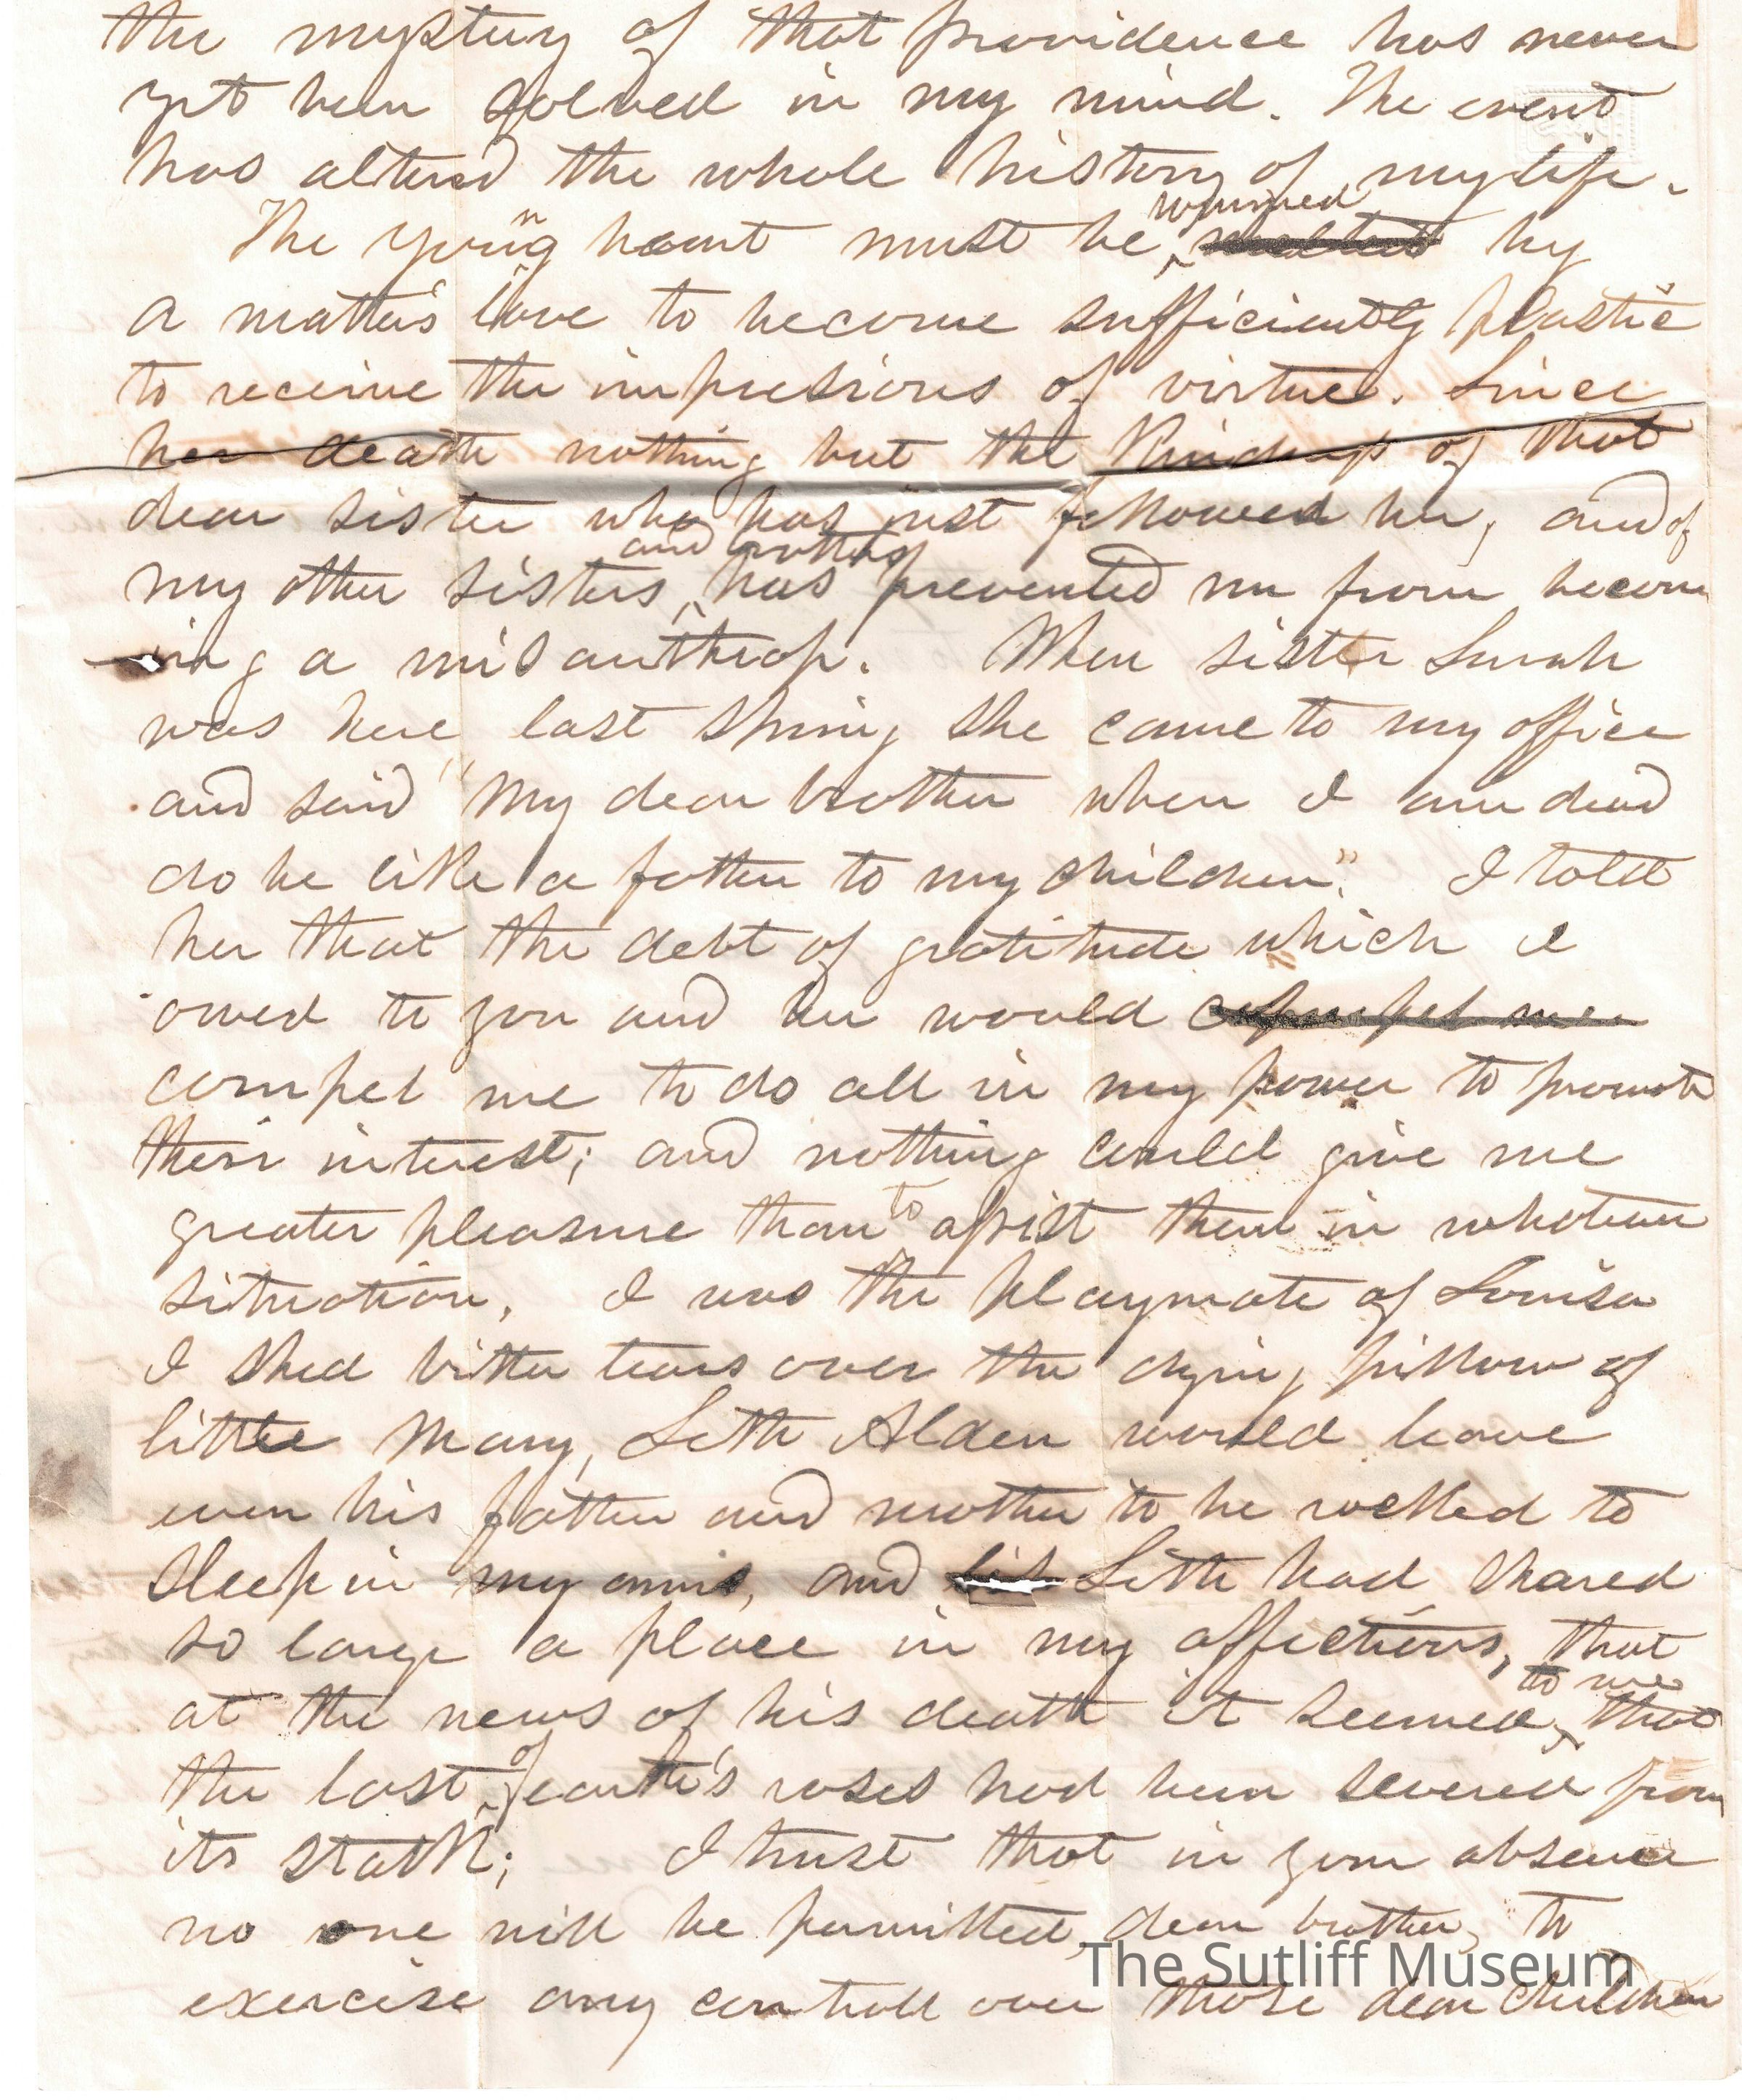 the mystery of that providence has never
yet been solved in my mind. The event
has altered the whole history of my life.
The young heart must be warmed by
a mother's love to become sufficiently plastic
to receive the impressions of virtue. Since
her death nothing but the kindness of that
dear sister who has just followed her, and of
my other sisters, and brothers has prevented me from becom
ing a misanthrop. When sister Sarah
was here last spring she came to my office
and said "My dear brother when I am dead
do be like a father to my children." I told
her that the debt of gratitude which I
owed to you and her would compel me
compel me to do all in my power to promote
their interest; and nothing could give me
greater pleasure than to assist them in whatever
situation. I was the playmate of Louisa
I shed bitter tears over the dying pillow of
little Mary, Seth Alden would leave
even his father and mother to be rocked to
sleep in my arms, and Seth had shared
so large a place in my affections, that
at the news of his death it seemed to me that
the last of earth's roses had been severed from
its stalk; I trust that in your absence
no one will be permitted, dear brother, to
exercise any controll over those dear children
The Sutliff Museum